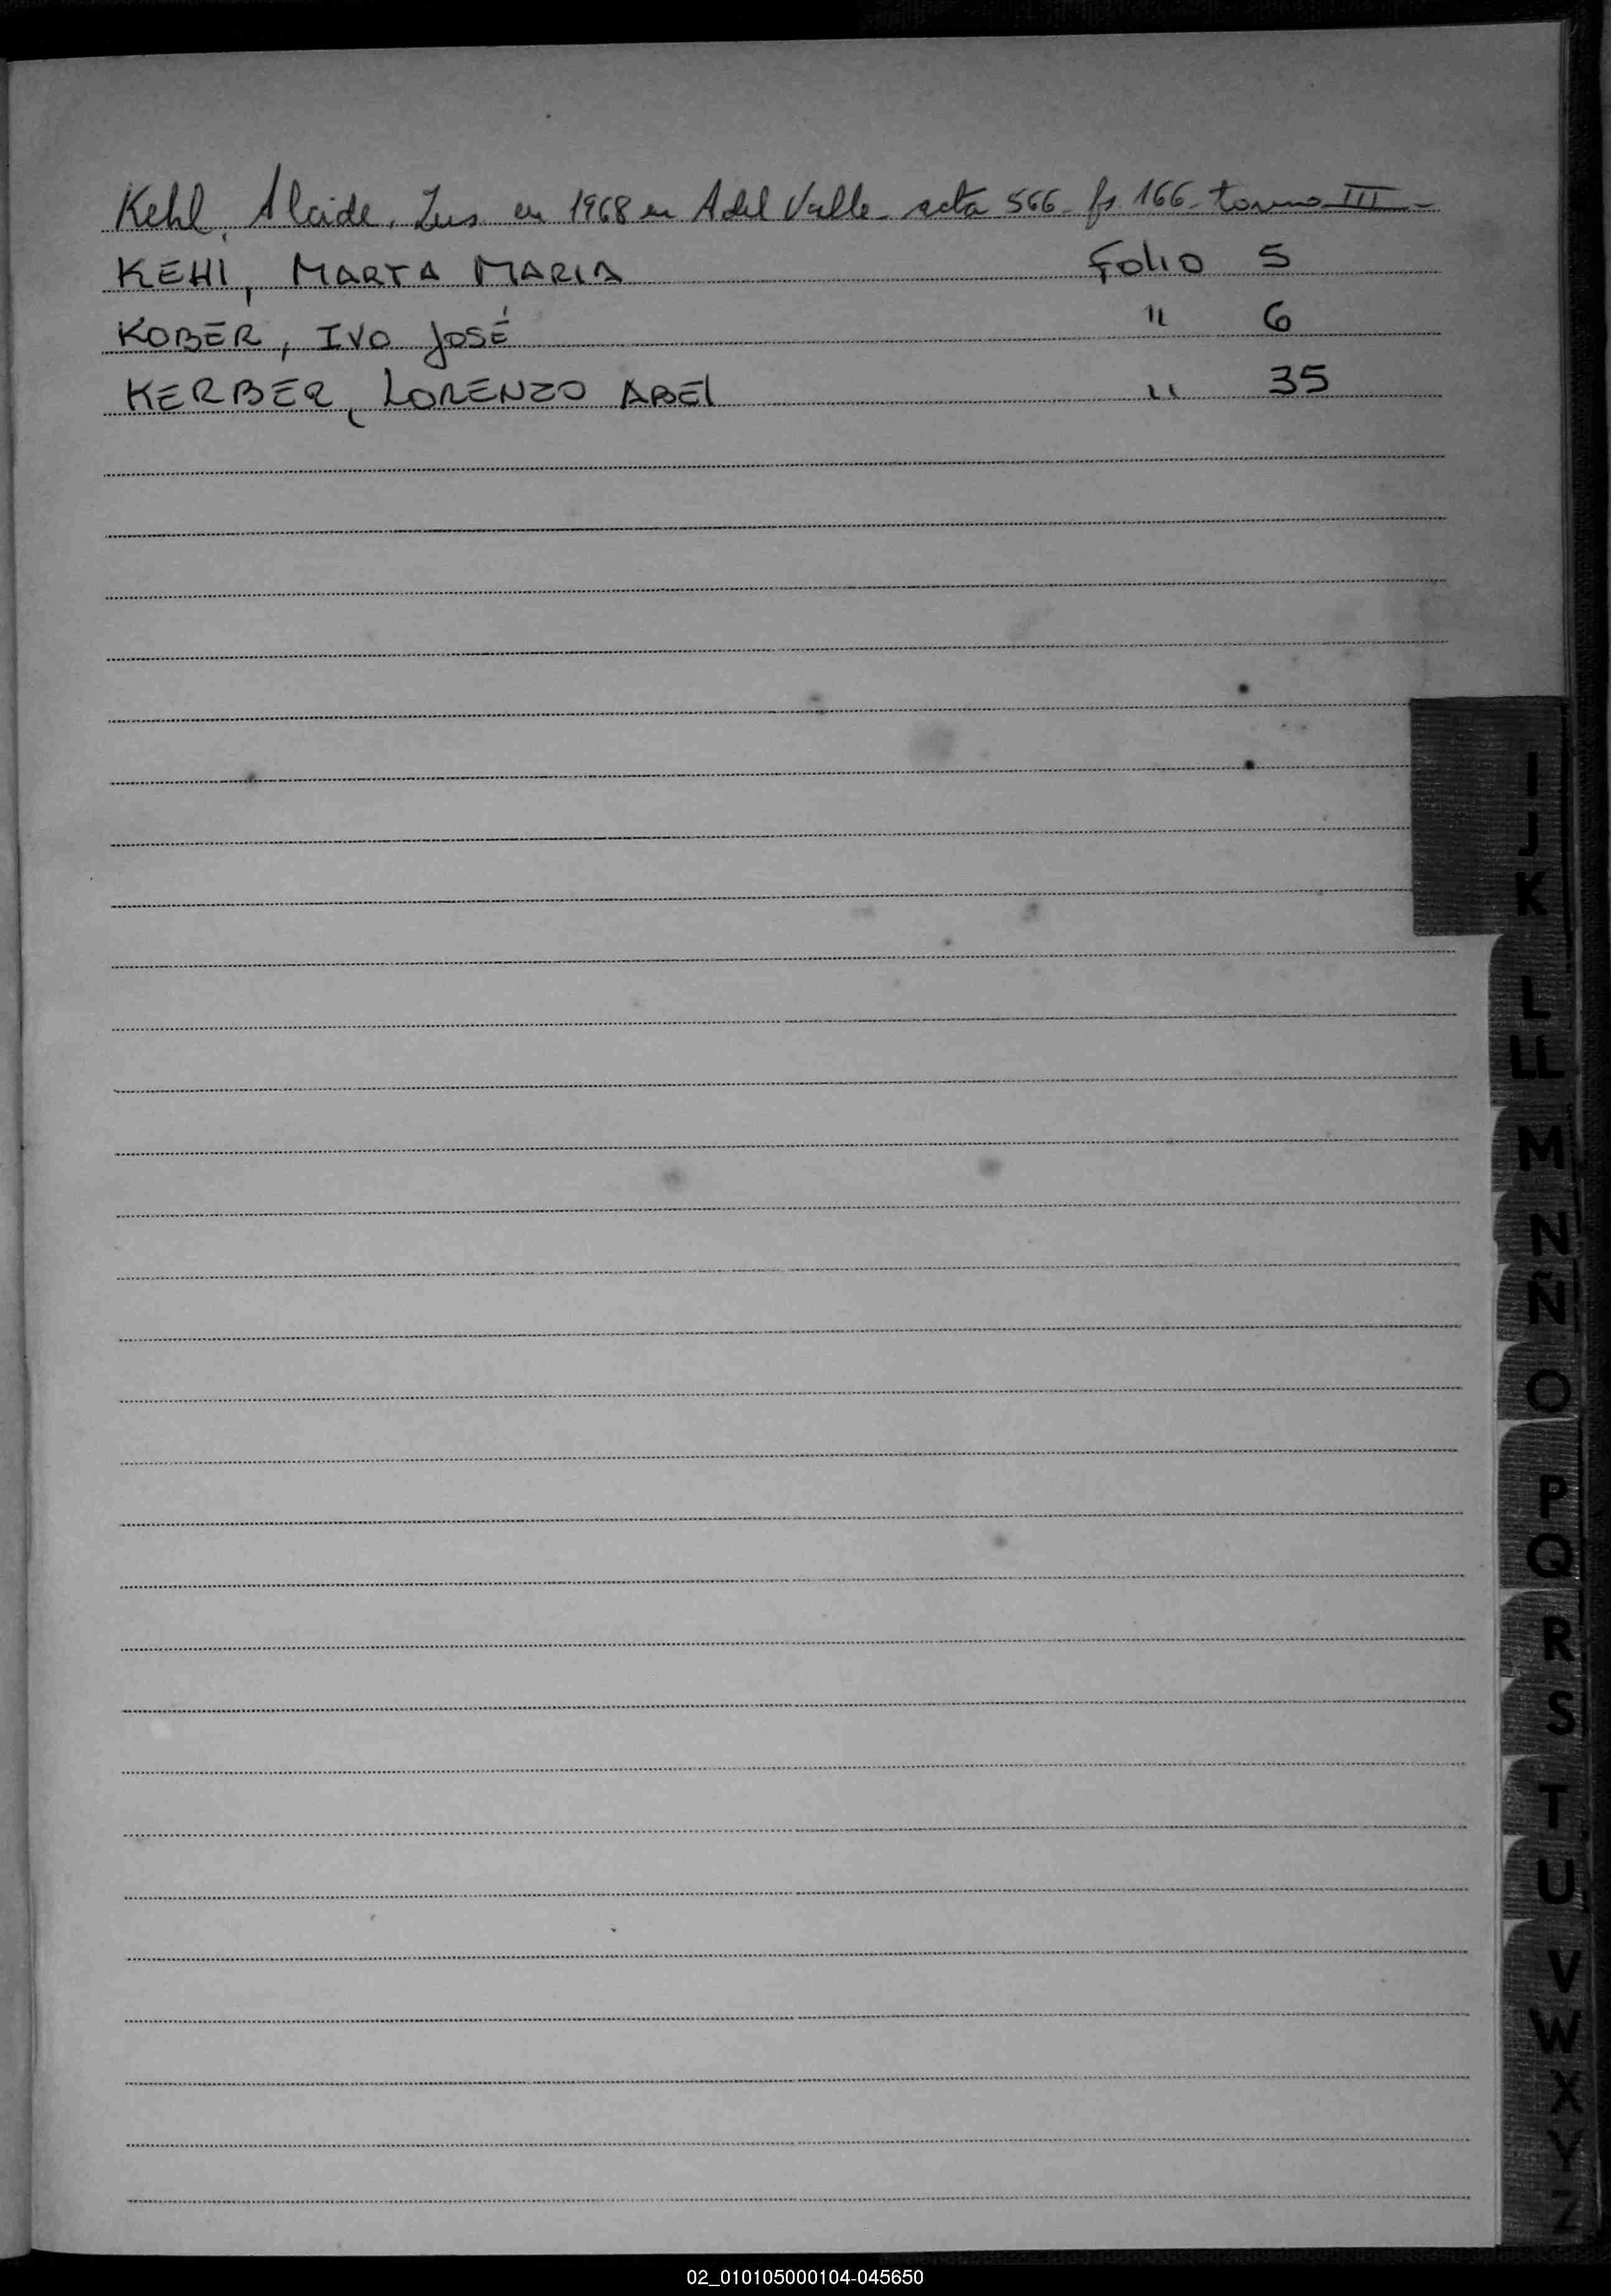 Kehl, Alcide. Ins en 1968 en A del Valle - acta 566 - fs 166 - tomo III -
KEHl, MARTA MARIA Folio 5
KOBER, IVO JOSÉ " 6
KERBER, LORENZO ABEl " 35
I
J
K
L
LL
M
N
Ñ
O
P
Q
R
S
T
U
V
W
X
Y
Z
02_010105000104-045650